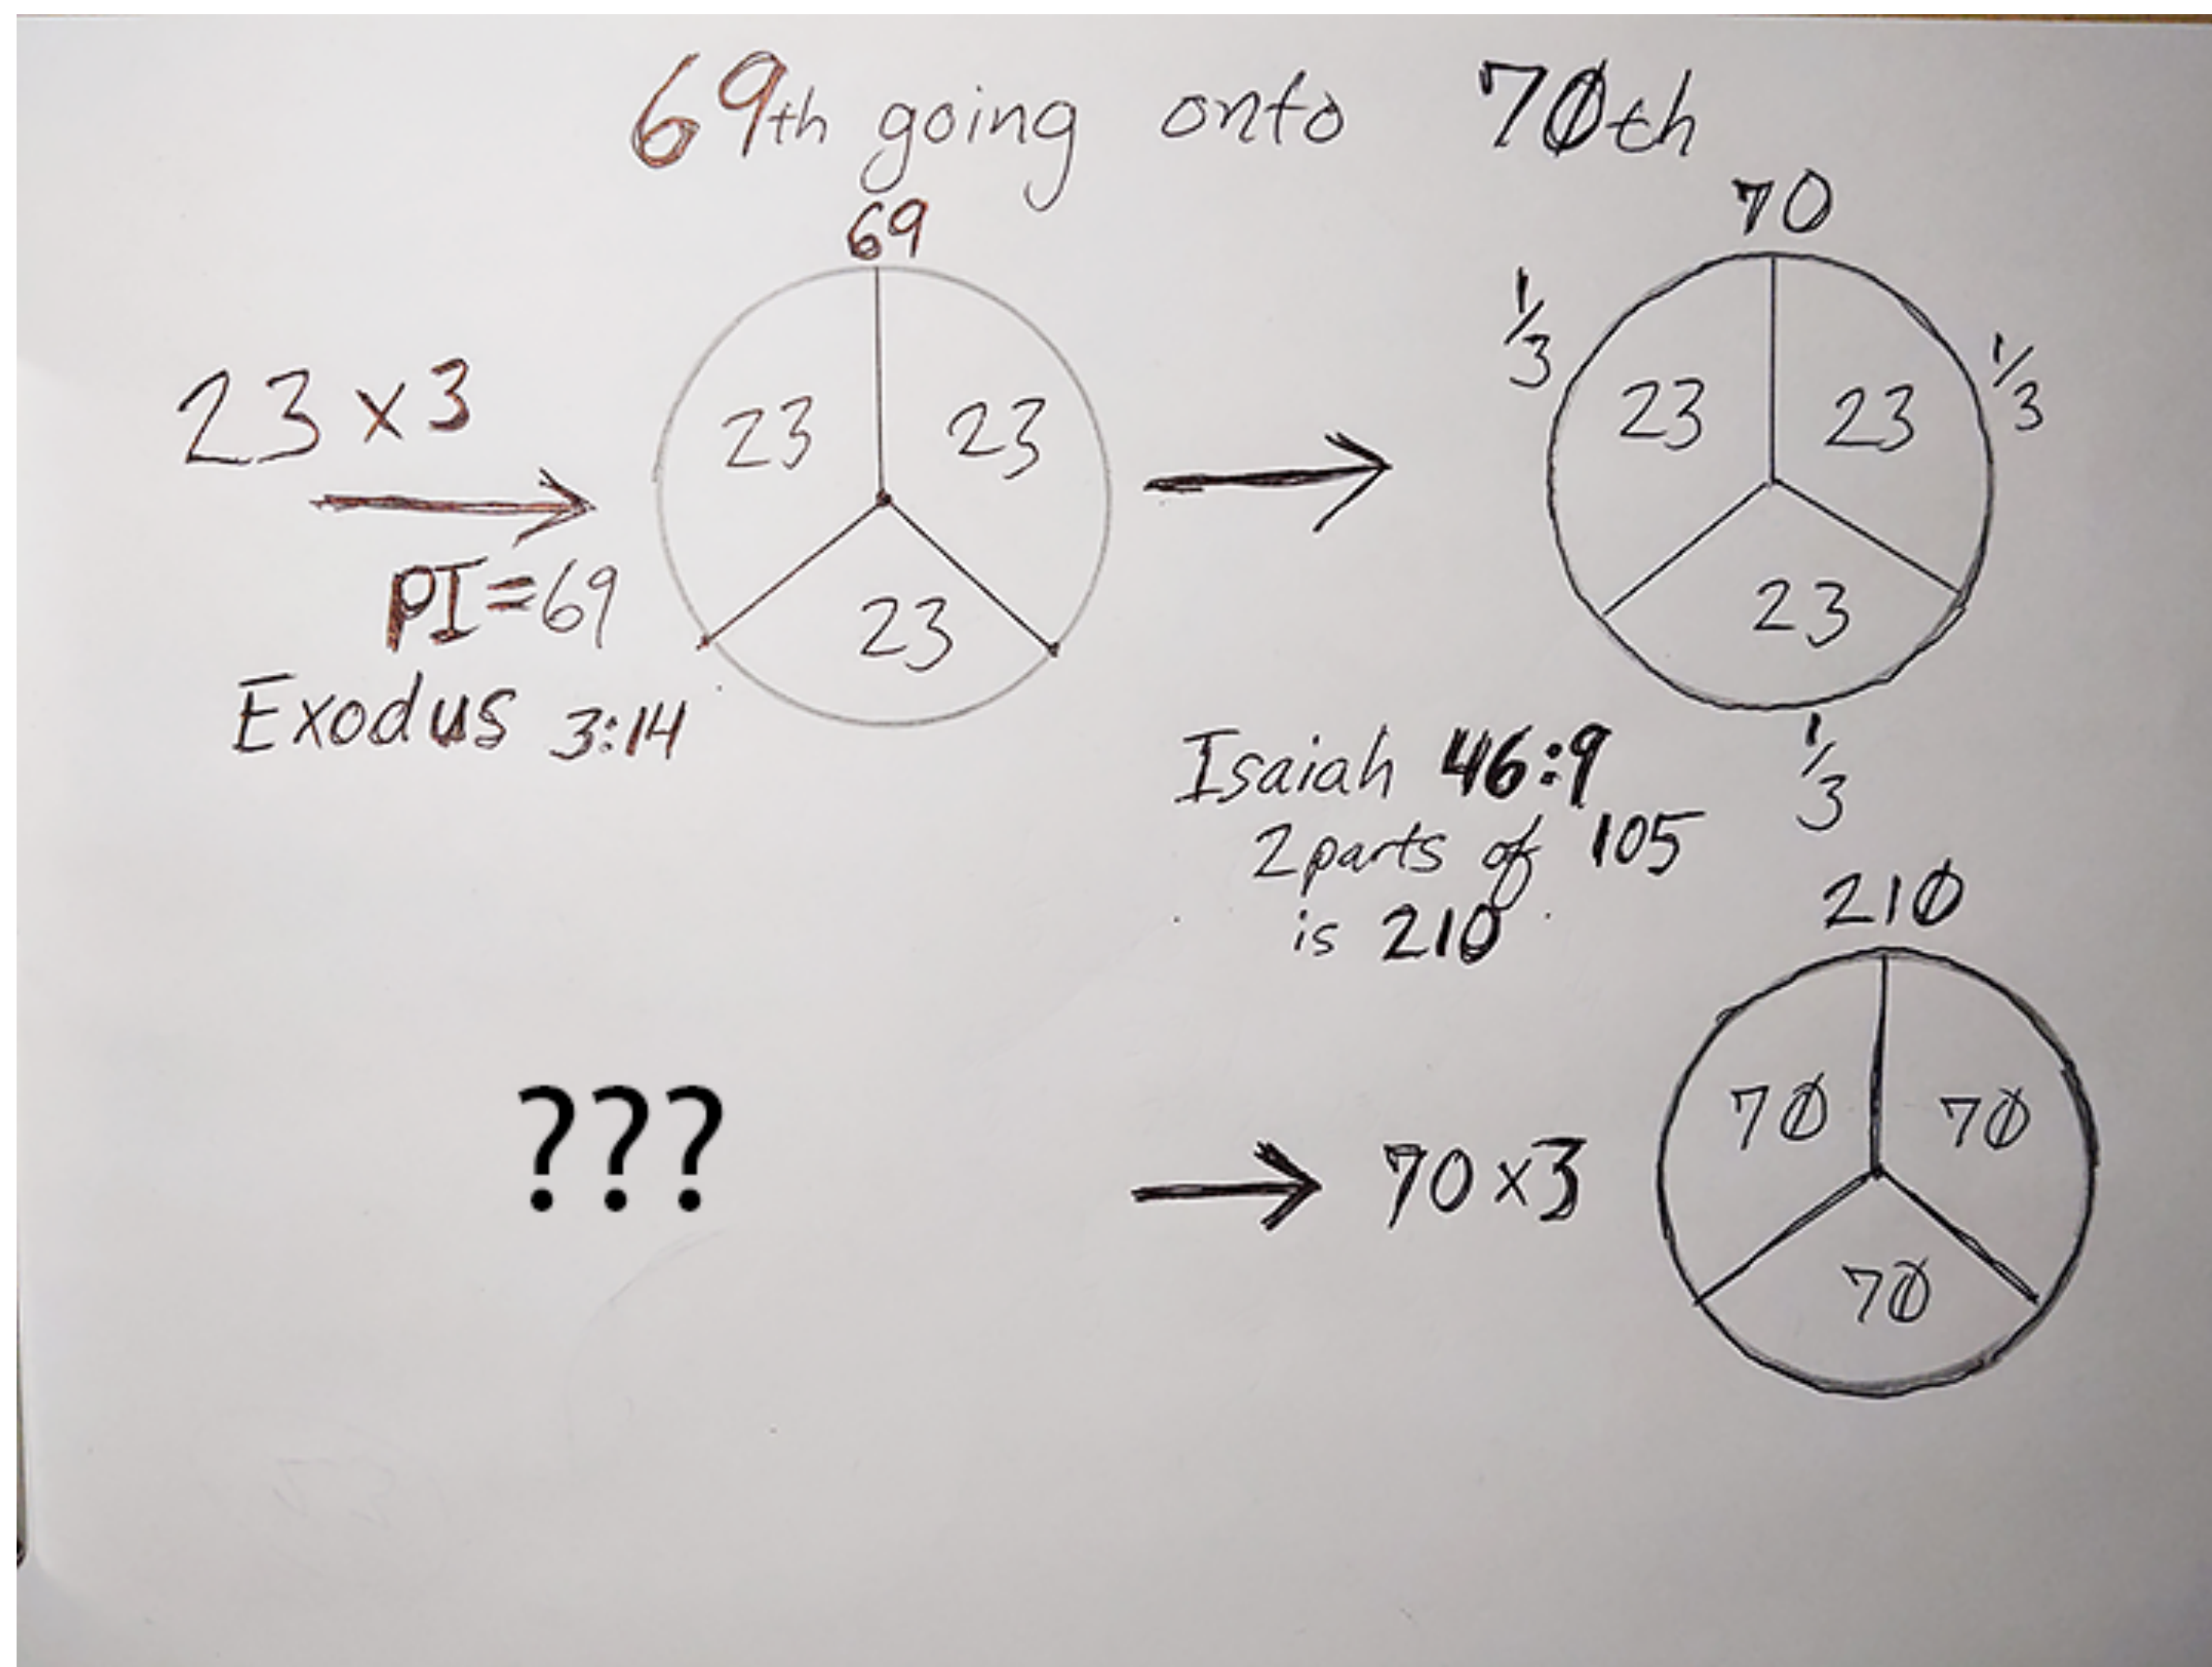 69th going onto 70th
69
70
23 x 3
23 23
23
PI=69
Exodus 3:14
1/3
1/3
23 23
23
1/3
Isaiah 46:9
2 parts of 105
is 210
210
???
70 x 3
70 70
70